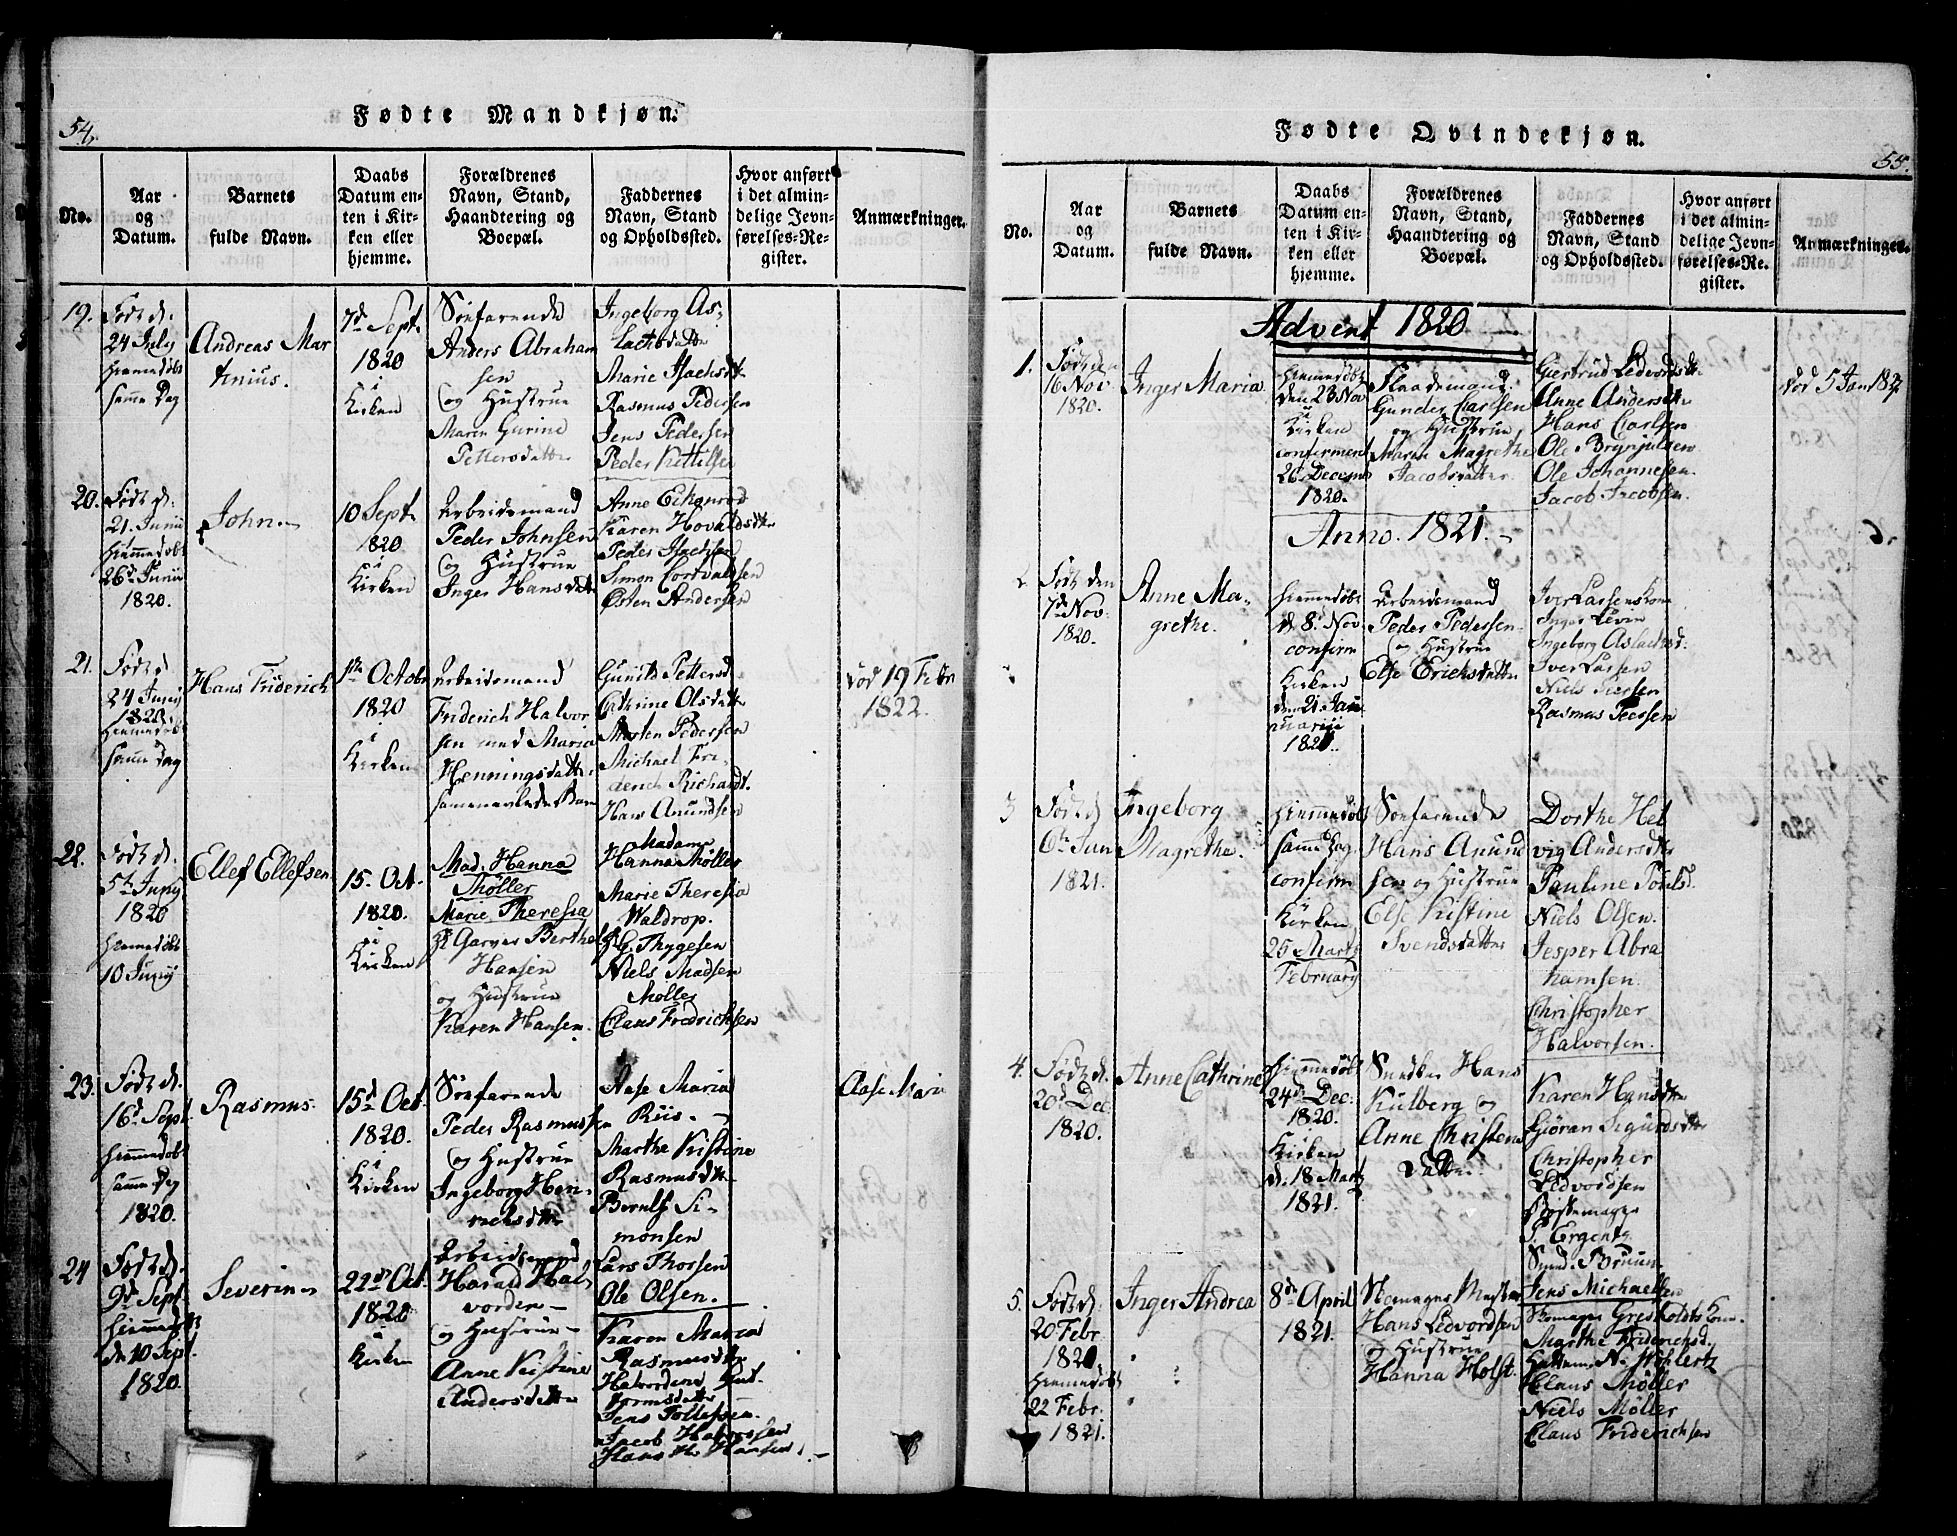 54.
Fødte Mandkjøn.
No.
Aar
og
Datum.
Barnets
fulde Navn.
Daabs
Datum en-
ten i Kir-
ken eller
hjemme.
Forældrenes
Navn, Stand,
Haandtering og
Boepæl.
Faddernes
Navn, Stand
og Opholdssted.
Hvor anført
i det almin-
delige Jevn-
førelses-Re-
gister.
Anmærkninger.
19.
Født d.
24 July
hiemmedøbt
samme Dag
Andreas Mar
tinius.
7d Sept.
1820
i
Kirken
Søefarende
Anders Abraham
sen
og Hustrue
Maren Gurine
Pettersdatter
Ingeborg As-
lachsdatte
Marie Isachsdtr
Rasmus Pedersen
Jens Pedersen
Peder Kittilsen
20.
Født d.
21. Junii
hiemmedøbt
26d Junii
1820.
John
10 Sept.
1820
i
Kirken
Arbeidsmand
Peder Johnsen
og Hustrue
Inger Hansdatt
Anne
Karen Hovaldsdtr
Peder Isachsen
Simon
Østen Andersen
21.
Født d
24 Junij
1820.
hiemmedøbt
samme Dag
Hans Friderich
1ste Octobr
1820
i
Kirken
Arbeidsmand
Friderich Halvor
sen med Maria
Henningsdatter
sammenavlede Barn
Gunild Pettersd
Cathrine Olsdatt
Morten Pedersen
Michael Fri-
derich Richardt.
Hans Anundsen
død 19 Febr
1822.
22.
Født d.
5te Junij
1820
hiemmedøbt
10 Junij
Ellef Ellefsen
15. Oct.
1820.
i
Kirken
Mad. Hanna
Møller
Marie Theresia
Garver Berthel
Hansen
og Hustrue
Karen Hansen.
Madame
Hanna Møller
Marie Theresia
Waldrop.
Thygesen
Niels Madsen
Møller
Claus Fredrichsen
23.
Født d.
16d Sept.
hiemmedøbt
samme Dag
1820.
Rasmus.
15d Oct.
1820.
i
Kirken
Søefarende
Peder Rasmussen
og Hustrue
Ingeborg Hen-
richsdtr
Aase Maria
Riis
Marthe Kistine
Rasmusdtr
Bernls Si-
monsen
Lars Thorsen
Ole Olsen.
Aase Maria
24
Født d.
9d Sept.
hiemmedøbt
den 10 Sept.
1820.
Severin
22d Oct.
1820
Kirken
Arbeidsmand
Harald Hal-
vorsen
og Hustrue
Anne Kistine
Andersdatter
Karen Maria
Rasmusdtr
Halvordine Gut-
tormsdatter
Jens Tollefsen.
Jacob Halvorsen
Hans Hansen.
Fødte Qvindekjøn.
55.
No.
Aar
og
Datum.
Barnets
fulde Navn.
Daabs
Datum en-
ten i Kir-
ken eller
hjemme.
Forældrenes
Navn, Stand,
Haandtering og
Boepæl.
Faddernes
Navn, Stand
og Opholdssted.
Hvor anført
i det almin-
delige Jevn-
førelses-Re-
gister.
Anmærkninger.
Advent 1820
1.
Født den
16 Nov
1820.
Inger Maria
hiemmedøbt
den 23 Nov
i
Kirken
confirmert
26 Decemb
1820.
Flaademand
Gunder Carlsen
og Hustrue
Maren Magrethe
Jacobsdatter
Giertrud Ledvordsdtr
Anne Andersdtr
Hans Carlsen
Ole Brynjulsen
Ole Johannesen
Jacob Jacobsen.
død 5 Jan 182
Anno. 1821.
2
Født den
7de Nov.
1820.
Anne Ma-
grethe.
hiemmedøbt
d. 8. Nov.
confirm
Kirken
den 21. Jan-
uarii
1821.
Arbeidsmand
Peder Pedersen
og Hustrue
Else Erichsdatter
Iver Larsens kone
Inger Levin
Ingeborg Aslachsd.
Iver Larsen
Niels Persen
Rasmus Peersen
3
Født d
6te Jan
1821.
Ingeborg
Magrethe.
hiemmedøbt
samme Dag
confirm
Kirken
25 Marti
February
Søefarende
Hans Anund
sen og Hustrue
Else Kistine
Svendsdatter
Dorthe Hel
vig Andersdtr
Pauline Poulsd.
Niels Olsen.
Jesper Abra
hamsen.
Christopher
Halvorsen.
4.
Født d.
20d Dec.
1820.
Anne Cathrine
hiemmedøbt
24de Dec.
1820.
Kirken
d. 18 Marti
1821.
Snedker Hans
Kulberg og
Anne Christens
datter
Karen Hansdtr
Gjøran Sigurdsdtr
Christopher
Ledvordsen
Bøssemager
P. Ergents
Sned. Bruun
Jens Michaelsen
5.
Født d.
20 Febr.
1821
hiemmedøbt
22 Febr.
1821.
Inger Andrea
8de April
1821.
Skomager Mester
Hans Ledvordsen
og Hustrue
Hanna Holst.
Skomager Kone.
Marthe Friderichsd.
N. Wöhlertz
Claus Møller
Niels Møller
Claus Friderichsen